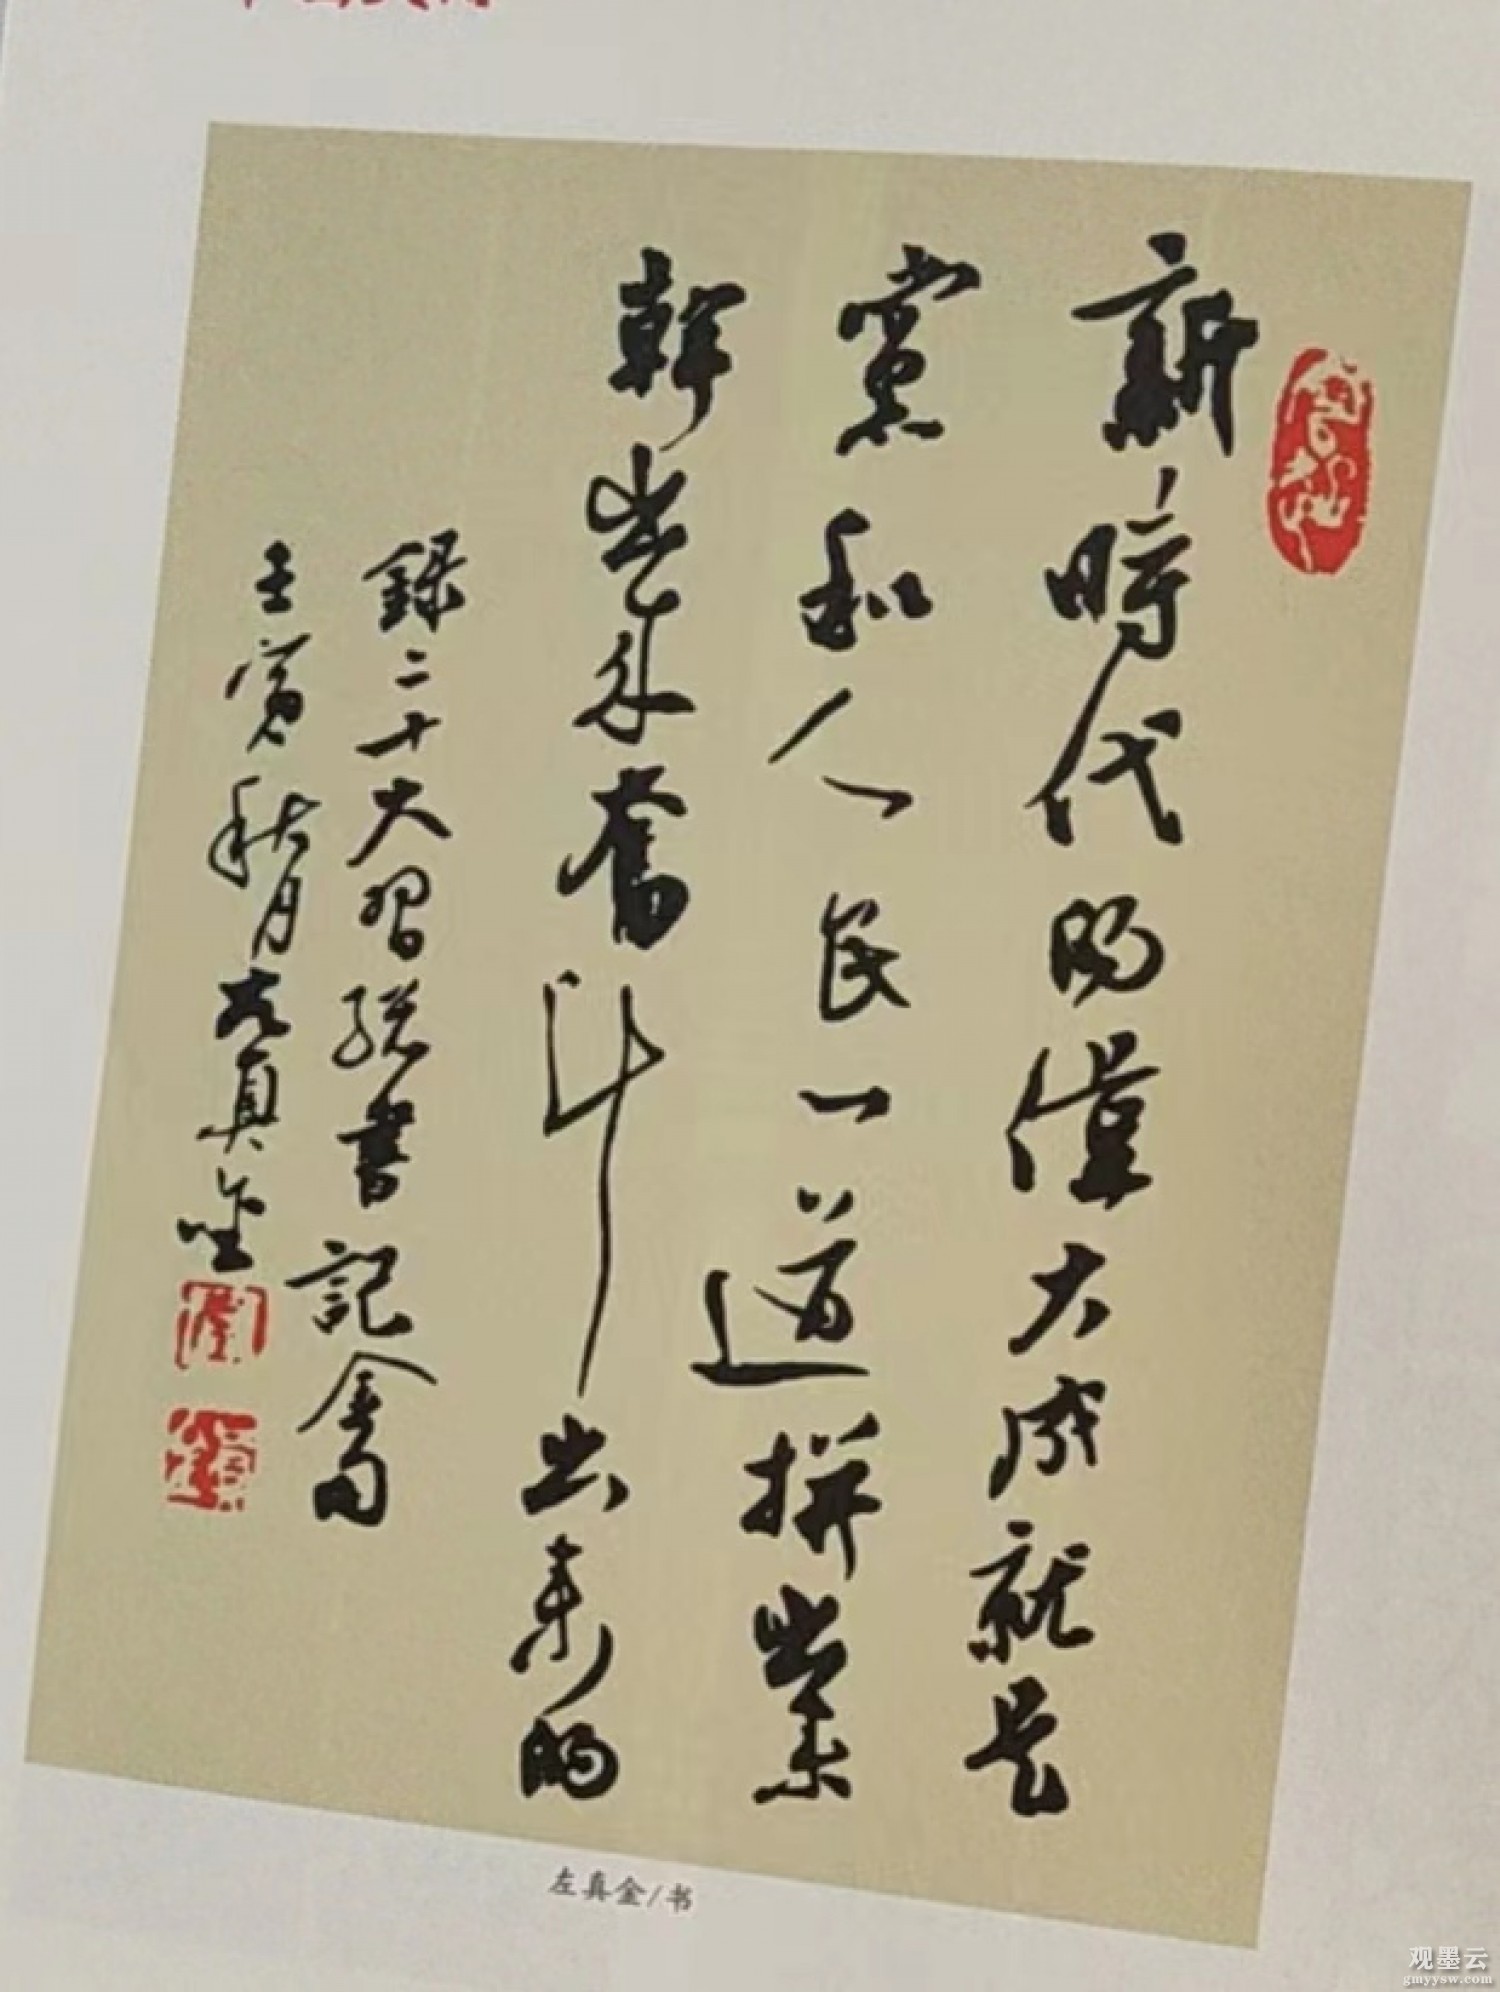 新時代的偉大成就是
黨和人民一道拼出来
幹出来奮斗出来的
録二十大習總書記金句
壬寅秋月左真金
左真金/书
观墨云
gmyysw.com